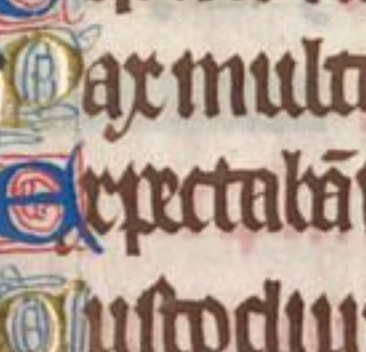 Pax mult
Expectabā
Custodiu